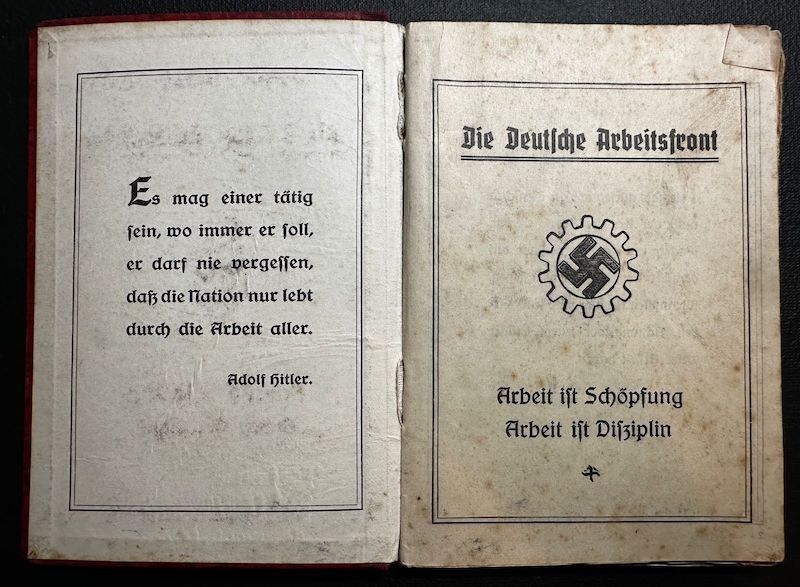 Es mag einer tätig
sein, wo immer er soll,
er darf nie vergessen,
daß die Nation nur lebt
durch die Arbeit aller.
Adolf Hitler.
Die Deutsche Arbeitsfront
Arbeit ist Schöpfung
Arbeit ist Disziplin